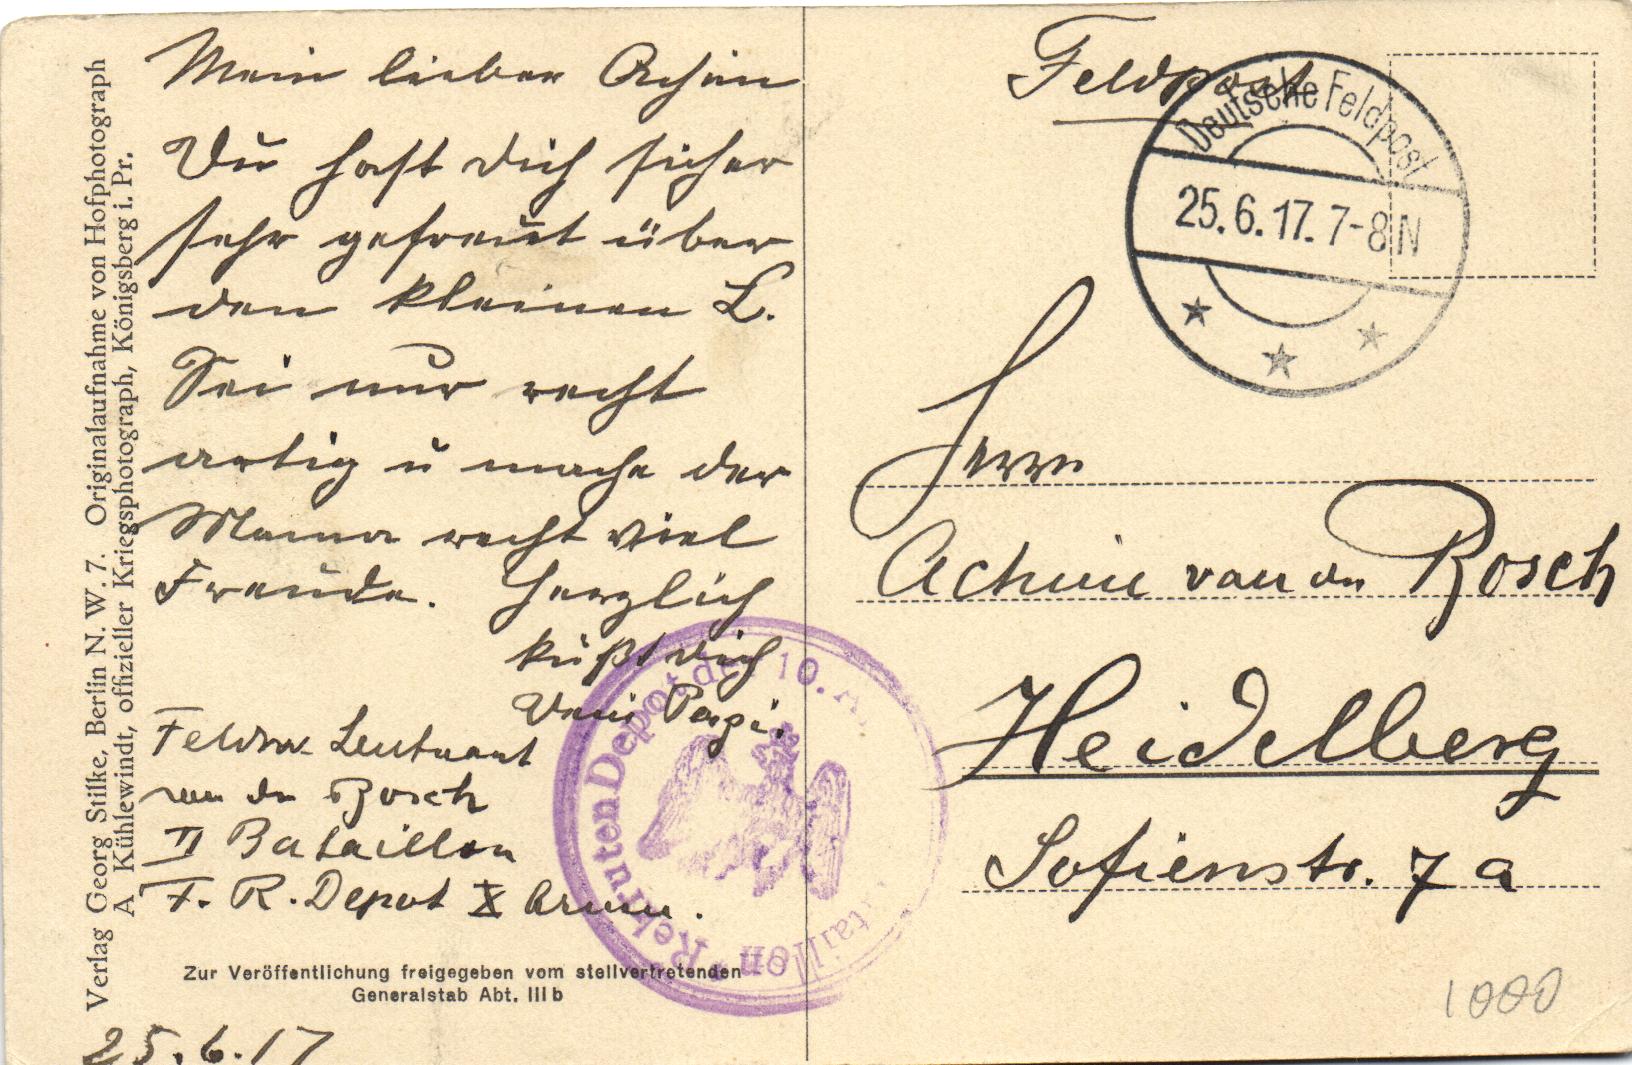 Mein lieber Achim
Du hast Dich sicher
sehr gefreut über
den kleinen L.
Sei nur recht
artig u mache der
Mama recht viel
Freude. Herzlich
küßt Dich
Dein Papi.
Feldw. Leutnant
van den Bosch
II Bataillon
F. R. Depot X Armee.
Zur Veröffentlichung freigegeben vom stellvertretenden
Generalstab Abt. IIIb
25.6.17
Verlag Georg Stilke, Berlin N. W. 7. Originalaufnahme von Hofphotograph
A Kühlewindt, offizieller Kriegsphotograph, Königsberg i. Pr.
Rekruten Depot der 10.
Feldpost
Deutsche Feldpost
25.6.17.7-8N
Herrn
Achim van den Bosch
Heidelberg
Sofienstr. 7a
1000